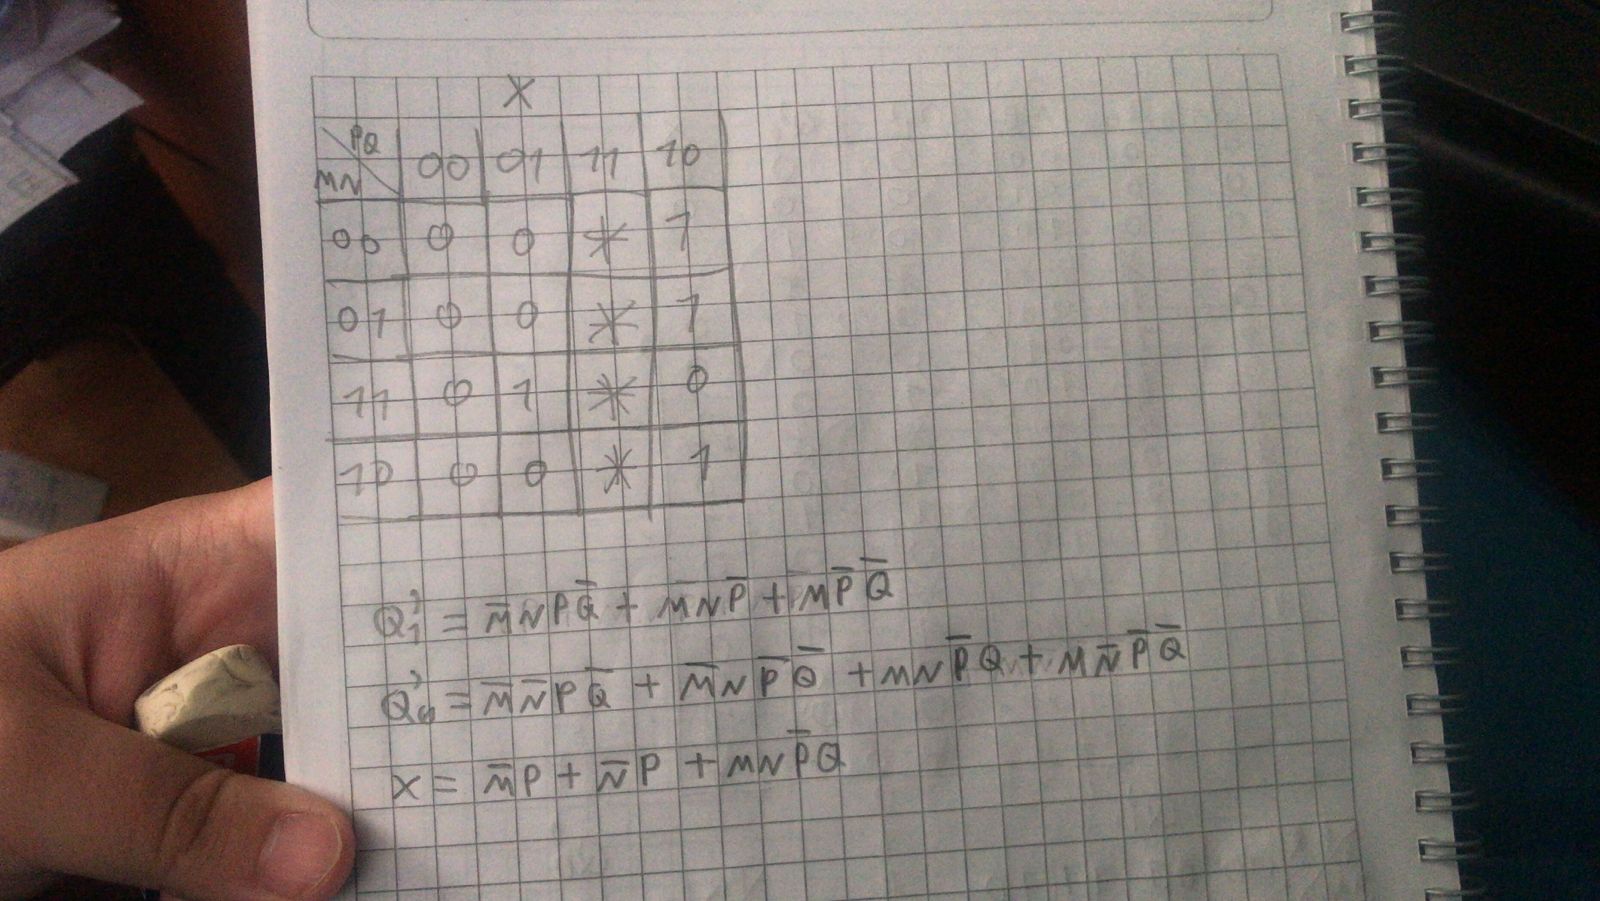 X
PQ
MN 00 01 11 10
00 0 0 * 1
01 0 0 * 1
11 0 1 * 0
10 0 0 * 1
Q₁' = M̄NPQ̄ + M̄NP̄ + MP̄Q̄
Q₀' = M̄N̄PQ̄ + M̄NP̄Q̄ + MNP̄Q + MN̄P̄Q̄
X = M̄P + N̄P + MNP̄Q